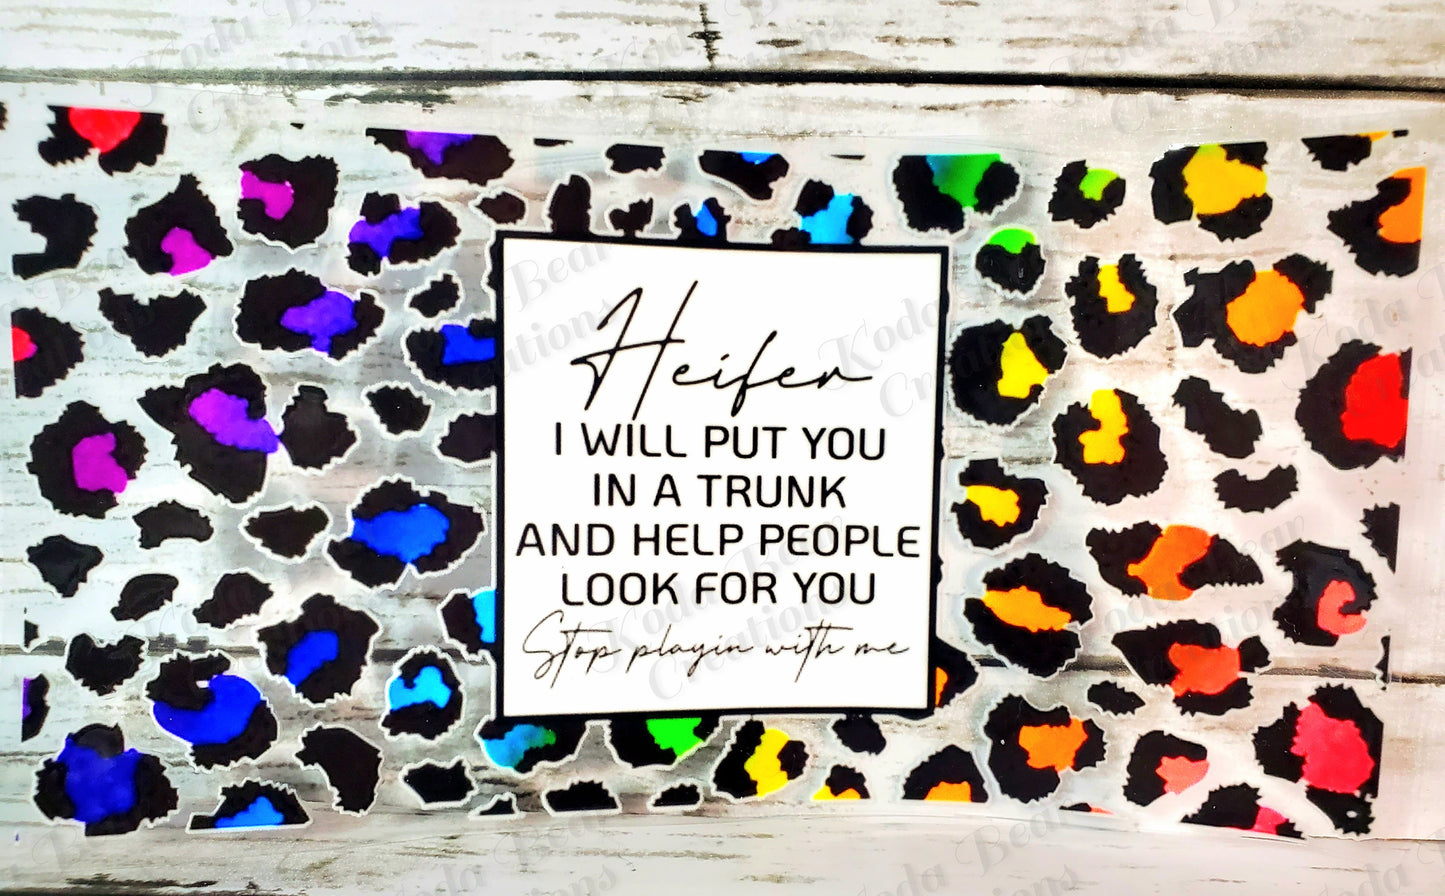 Koda Bear
Creations
Heifer
I WILL PUT YOU
IN A TRUNK
AND HELP PEOPLE
LOOK FOR YOU
Stop playin with me